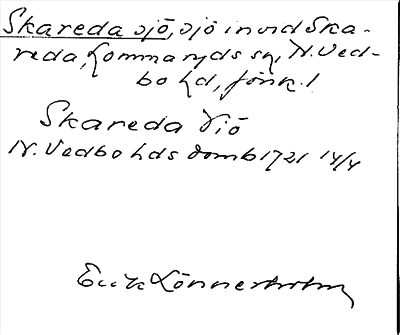 Skareda sjö, sjö invid Ska-
reda, Lommaryds sn, N. Ved-
bo hd, Jönk. l.
Skareda Siö
N. Vedbo hds domb 1721 14/4
Erik Lönnerholm